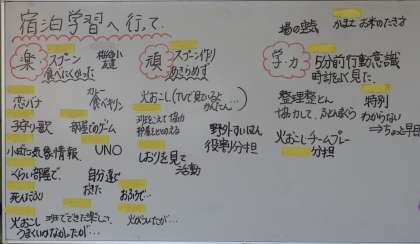 宿泊学習へ行って.
楽
スプーン
食べにくかった
恋バナ
カレー
食べキリン
狩り歌
部屋でのゲーム
気象情報
UNO
くらい部屋で、
自分達で
おきた
おふろで…
火おこし
うまくいかなかしたが…
班でできた楽しさ
火がついたが…
頑
スプーン作り
あきらめず
火おこし(TVで見ていると
かんたん…)
班をこえて協力
野外すいはん
役割分担
しおりを見て
活動
場の空気
お米のたきさ
学・力
5分前行動意識
時計をよく見た.
整理整とん
協力して、ふとんまくら
特別
わからない
⇒ちょっと早目
火おこしチームプレー
分担